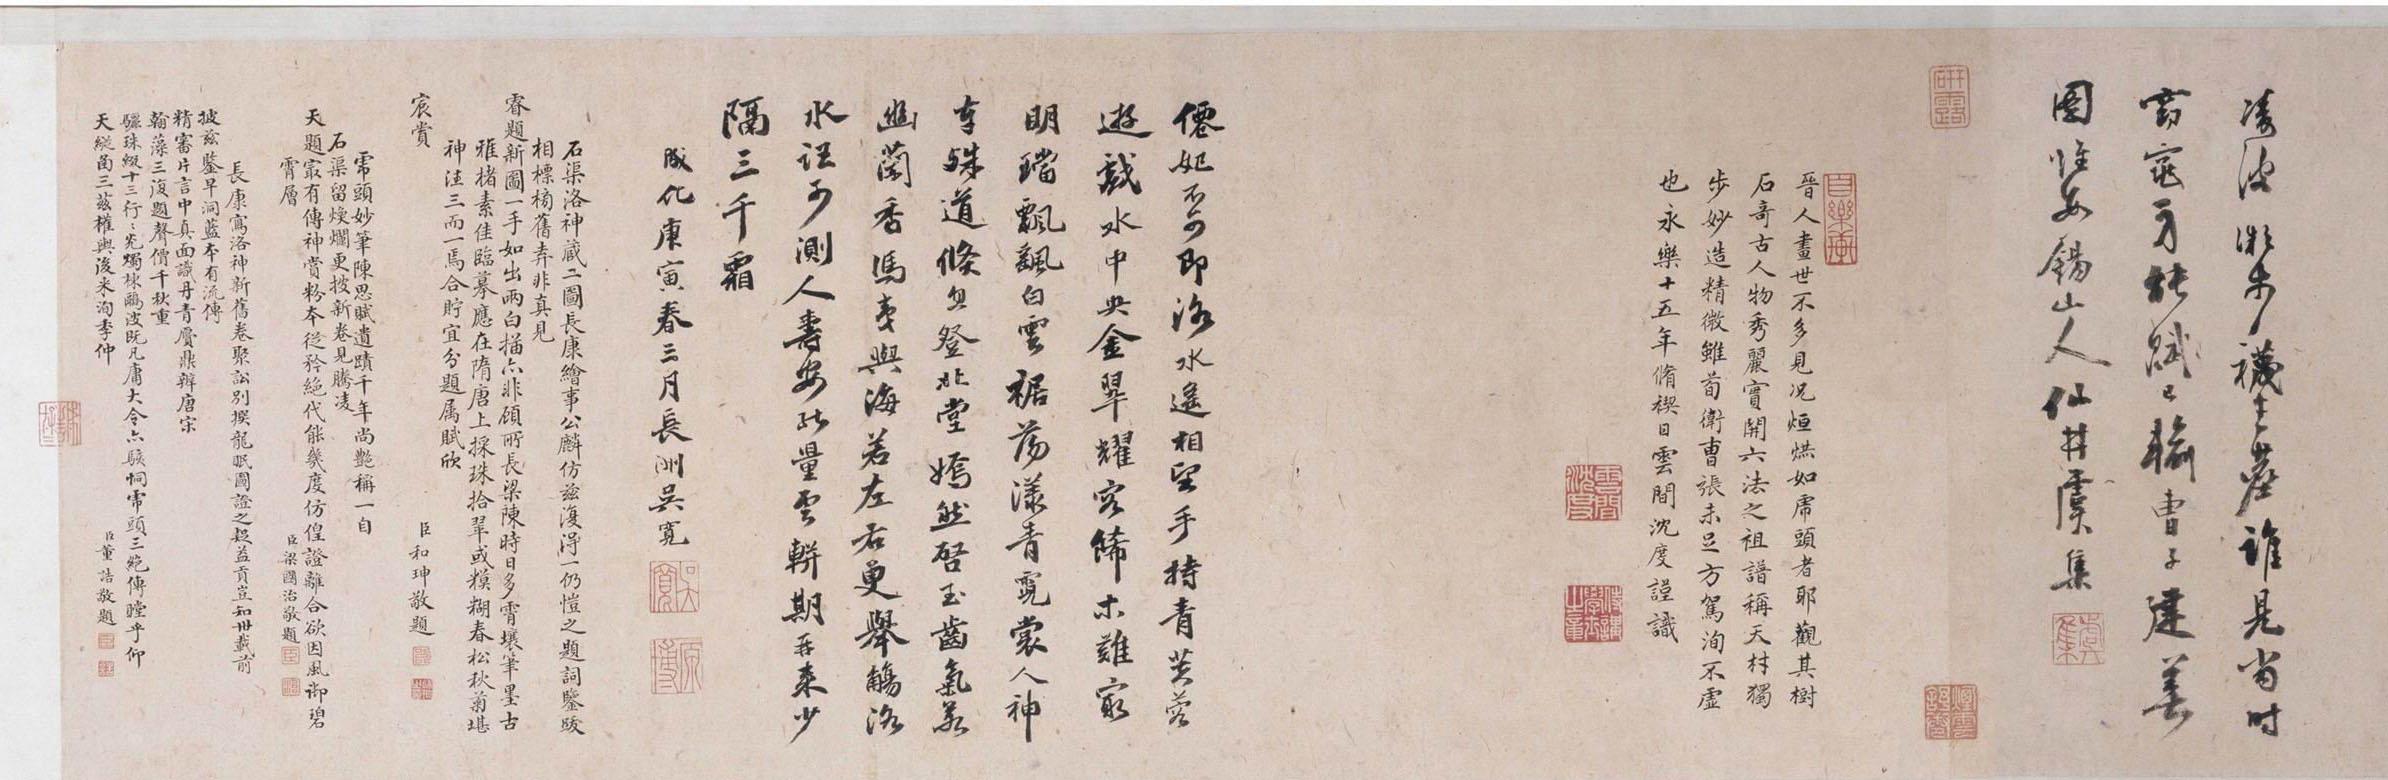 凌波微步襪生塵誰見當時
窈窕身能賦已輸曹子建善
圖惟安錫山人仙井虞集
晉人畫世不多見况烜烘如帝頭者耶觀其樹
石奇古人物秀麗實開六法之祖譜稱天材獨
步妙造精微雖荀衛曹張未足方駕洵不虛
也永樂十五年脩禊日雲間沈度謹識
僊妃不可即洛水遙相望手持青芙蓉
遊戲水中央金翠耀容飾木難寂
明璫飄飄白雲裾蕩漾青霓裳人神
有殊道倏忽登北堂嫣然啓玉齒氣若
幽蘭香馮夷與海若左右更舉觴洛
水詎可測人壽安能量雲輧期再来少
隔三千霜
成化庚寅春三月長洲吳寬
石渠洛神藏二圖長康繪事公麟仿兹復得一仍愷之題詞鑒跋
相標榜舊弆非真見
睿題新圖一手如出兩白描亦非顧所長梁陳時日多霄壤筆墨古
雅楮素佳臨摹應在隋唐上採珠拾翠或糢糊春松秋菊堪
神注三而一焉合貯宜分題属賦欣
宸賞
臣和珅敬題
帝頭妙筆陳思賦遺蹟千年尚艷稱一自
石渠留煥爛更披新卷見騰凌
天題寂有傳神賞粉本從矜絕代能幾度仿偟證離合欲因風御碧
霄層
臣梁國治敬題
長康寫洛神新舊卷聚訟別撰龍眠圖證之趍益貢豈知卅載前
披兹鑒早洞藍本有流傳
精審片言中真面識丹青贗鼎辨唐宋
翰藻三復題聲價千秋重
驪珠綴十三行行光燭棟鷗波既凡庸大令亦駭恫帝頭三絕傳瞠乎仰
天縱函三兹權輿後来洵季仲
臣董誥敬題